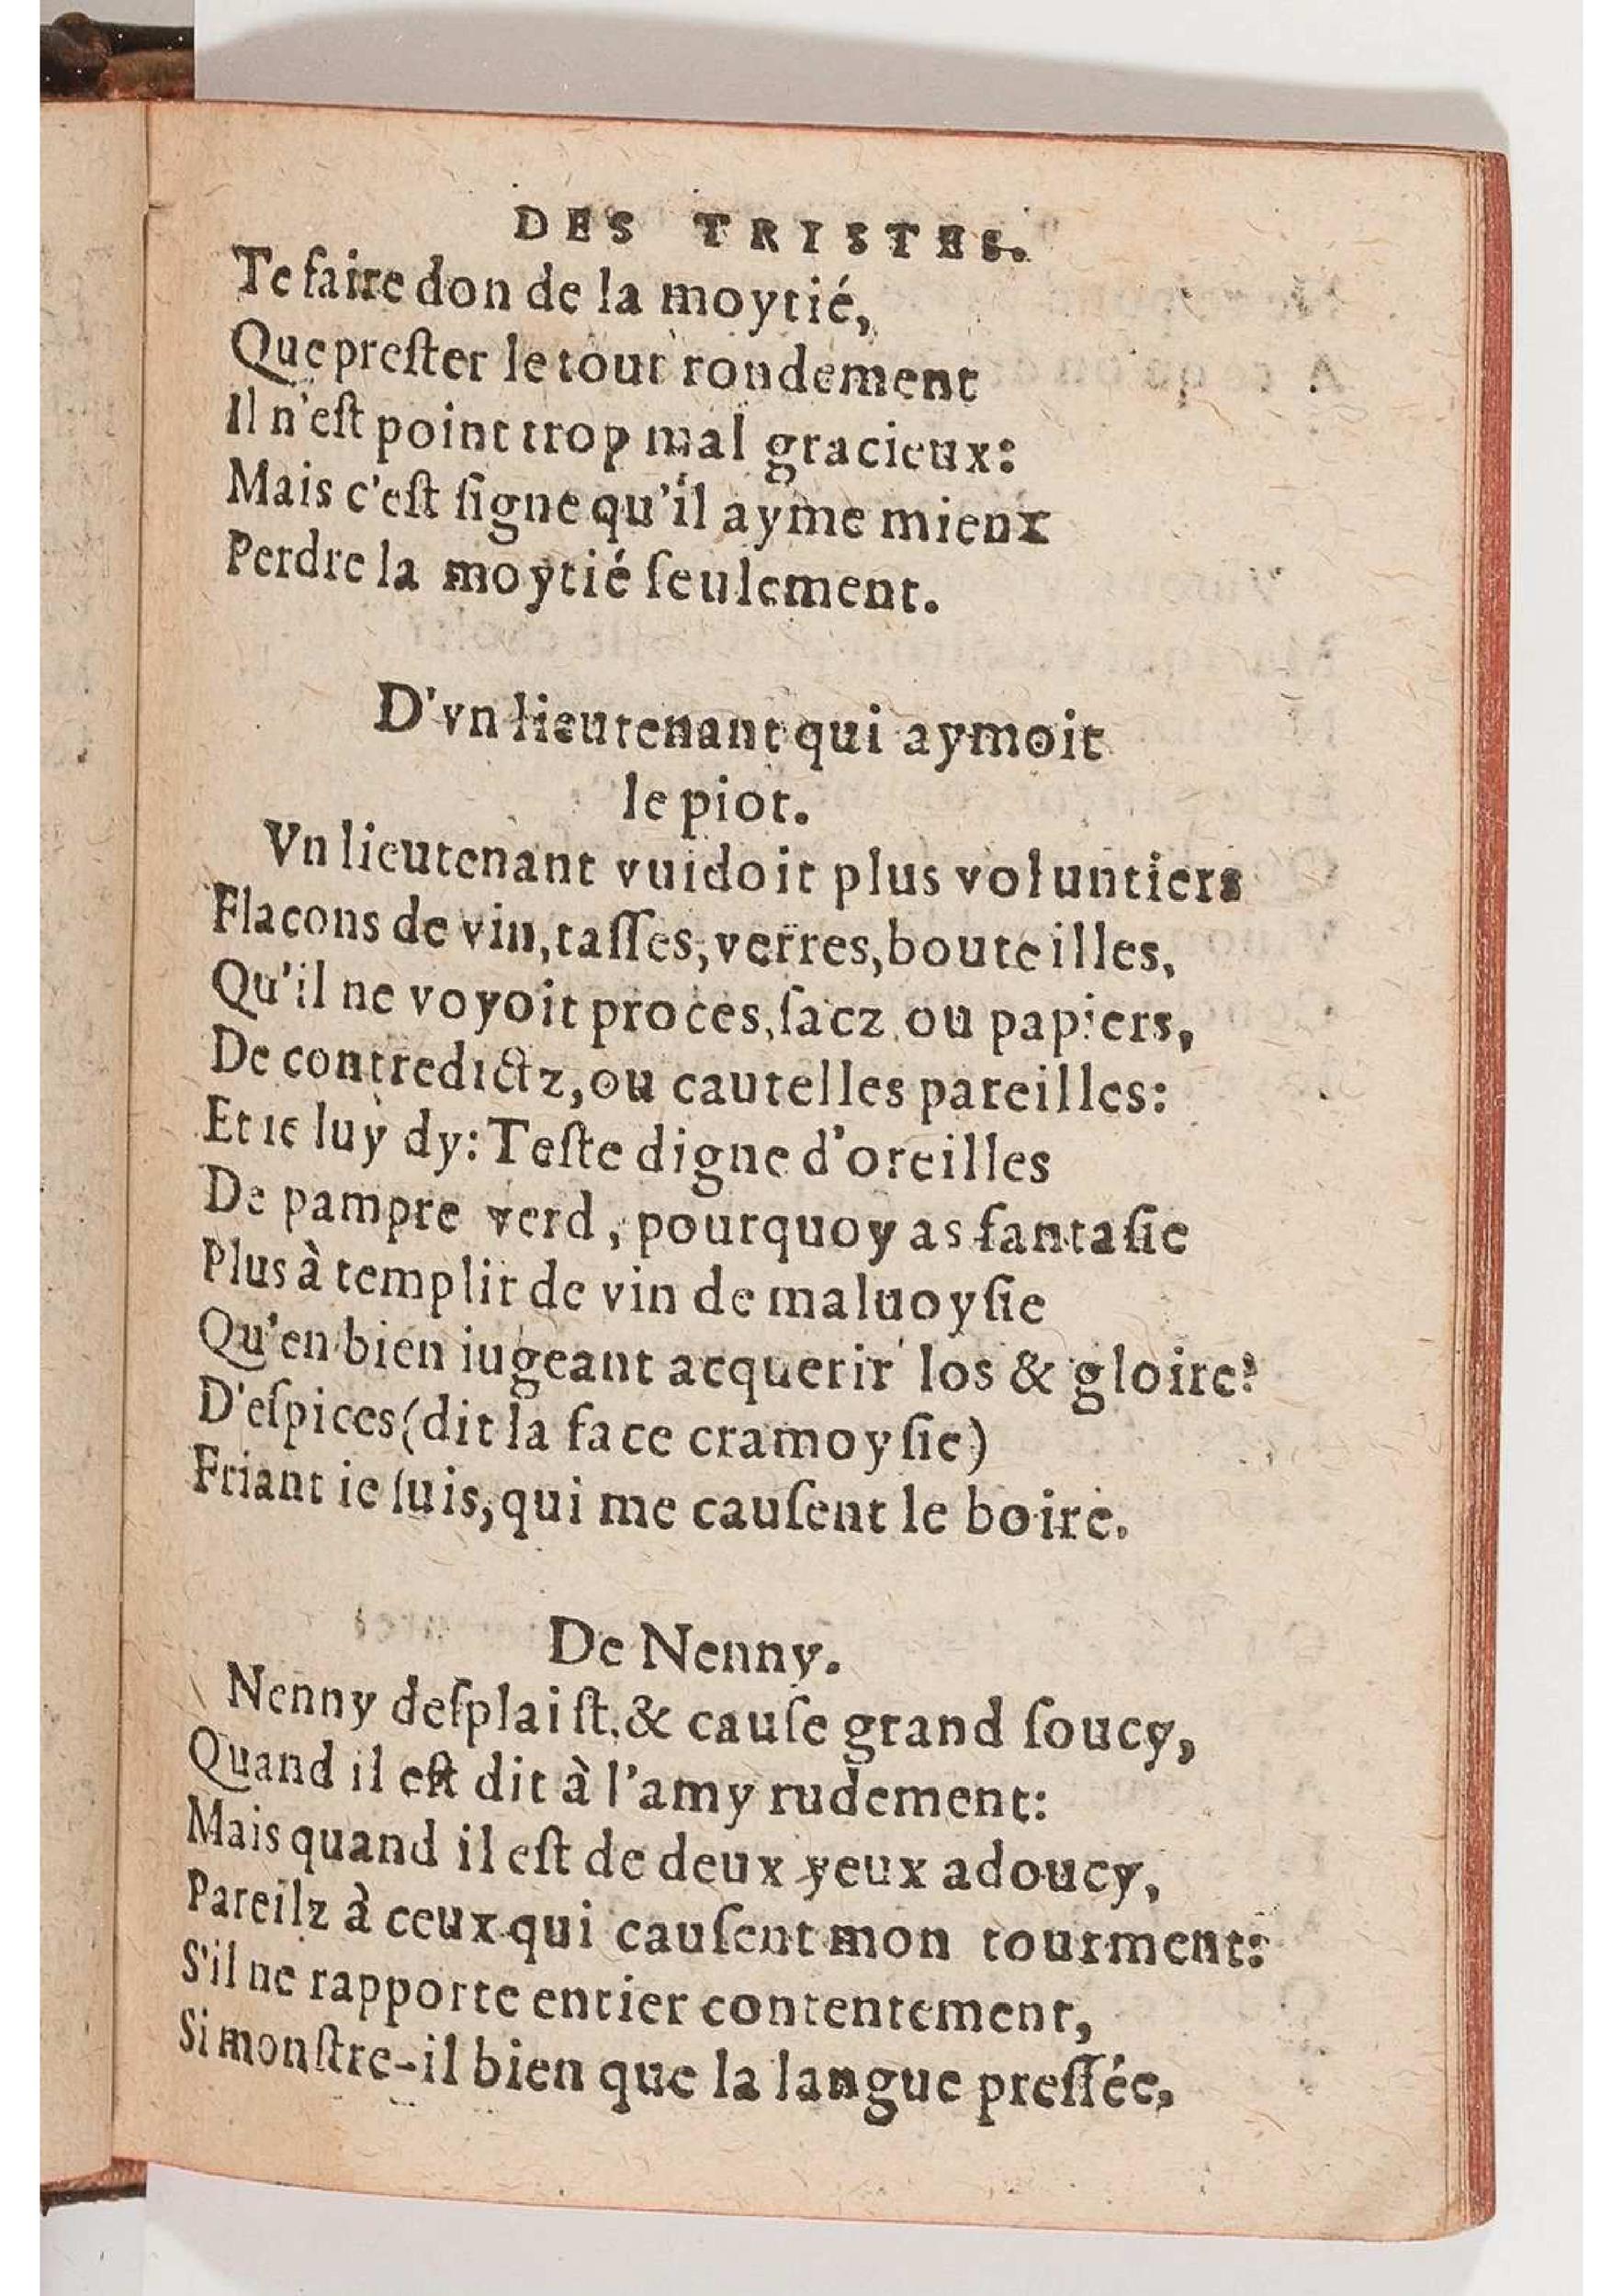 DES TRISTES.
Te faire don de la moytié,
Que preſter le tout rondement
Il n'eſt point trop mal gracieux:
Mais c'eſt ſigne qu'il ayme mieux
Perdre la moytié ſeulement.
D'vn lieutenant qui aymoit
le piot.
Vn lieutenant vuidoit plus voluntiers
Flacons de vin, taſſes, verres, bouteilles,
Qu'il ne voyoit proces, ſacz ou papiers,
De contredictz, ou cautelles pareilles:
Et ie luy dy: Teſte digne d'oreilles
De pampre verd, pourquoy as fantaſie
Plus à t'emplir de vin de maluoyſie
Qu'en bien iugeant acquerir los & gloire?
D'eſpices (dit la face cramoyſie)
Friant ie ſuis, qui me cauſent le boire.
De Nenny.
Nenny deſplaiſt, & cauſe grand ſoucy,
Quand il eſt dit à l'amy rudement:
Mais quand il eſt de deux yeux adoucy,
Pareilz à ceux qui cauſent mon tourment:
S'il ne rapporte entier contentement,
Si monſtre-il bien que la langue preſſée,